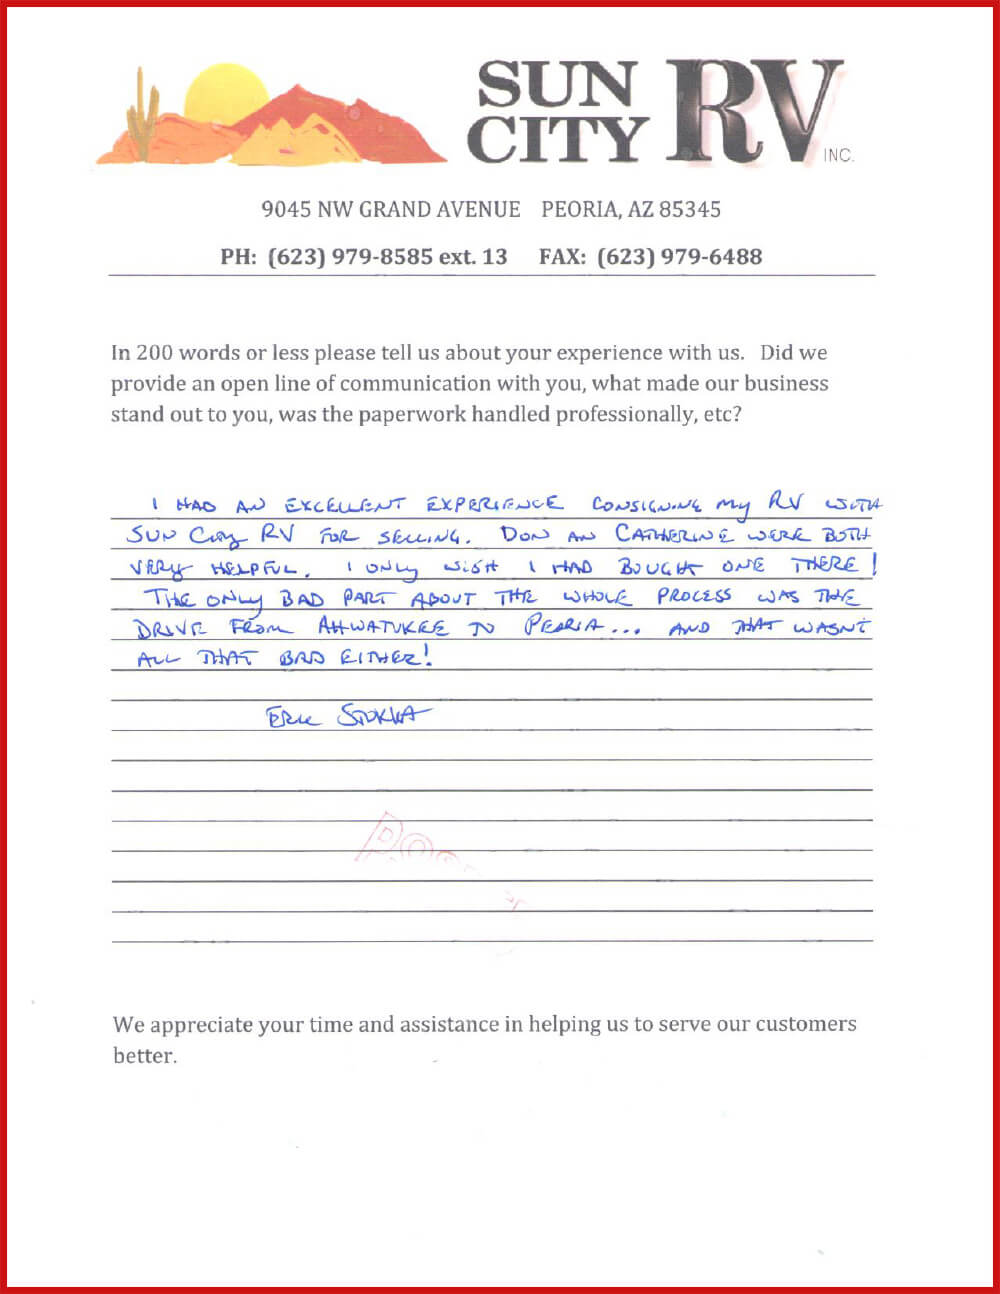 SUN CITY RV INC.
9045 NW GRAND AVENUE PEORIA, AZ 85345
PH: (623) 979-8585 ext. 13 FAX: (623) 979-6488
In 200 words or less please tell us about your experience with us. Did we
provide an open line of communication with you, what made our business
stand out to you, was the paperwork handled professionally, etc?
I HAD AN EXCELLENT EXPERIENCE CONSIGNING My RV WITH
SUN City RV FOR SELLING. DON AN CATHERINE WERE BOTH
VERy HELPFUL. I ONLy WISH I HAD BOUGHT ONE THERE!
THE ONLy BAD PART ABOUT THE WHOLE PROCESS WAS THE
DRIVE FROM AHWATUKEE TO PEORIA... AND THAT WASN'T
ALL THAT BAD EITHER!
ERIC
We appreciate your time and assistance in helping us to serve our customers
better.